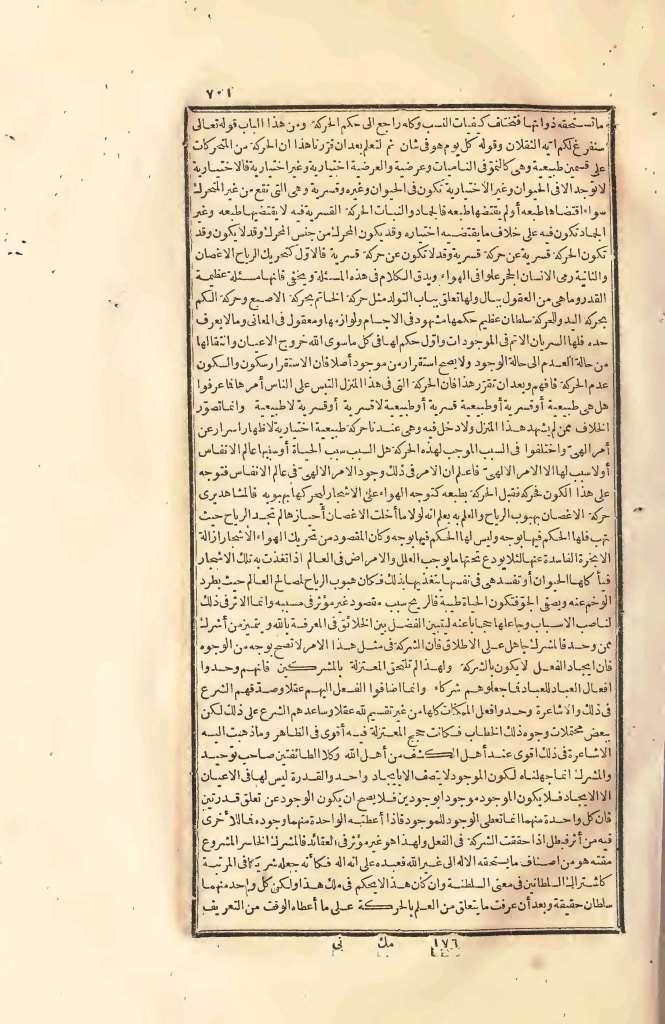 ٧٠١
ما تستحقه ذواتها فتختلف كيفيات النسب وكله راجع الى حكم الحركة ومن هذا الباب قوله تعالى
سنفرغ لكم ايه الثقلان وقوله كل يوم هو فى شان ثم لتعلم بعد ان قررنا هذا ان الحركة من المتحركات
على قسمين طبيعية وهى كالنمو فى الناميات وعرضية والعرضية اختيارية وغير اختيارية فالاختيارية
لا توجد الا فى الحيوان وغير الاختيارية تكون فى الحيوان وغيره وقسرية وهى التى تقع من غير المتحرك
سواء اقتضاها طبعه أو لم يقتضها طبعه فالجماد والنبات الحركة القسرية فيه لا يقتضيها طبعه وغير
الجماد تكون فيه على خلاف ما يقتضيه اختياره وقد يكون المحرك من جنس المحرك وقد لا يكون وقد
تكون الحركة قسرية عن حركة قسرية وقد لا تكون عن حركة قسرية فالاول كتحريك الرياح الاغصان
والثانية رمى الانسان الحجر علوا فى الهواء ويدق الكلام فى هذه المسئلة ويخفى فانها مسئلة عظيمة
القدر وما هى من العقول ببال ولها تعلق بباب التولد مثل حركة الخاتم بحركة الاصبع وحركة الكم
بحركة اليد وللحركة سلطان عظيم حكمها مشهود فى الاجسام ولوازمها ومعقول فى المعانى وما لا يعرف
حده فلها السريان الاتم فى الموجودات واول حكم لها فى كل ماسوى الله خروج الاعيان وانتقالها
من حالة العدم الى حالة الوجود ولا يصح استقرار من موجود أصلا فان الاستقرار سكون والسكون
عدم الحركة فافهم وبعد ان تقرر هذا فان الحركة التى فى هذا المنزل التبس على الناس أمرها فما عرفوا
هل هى طبيعية أو قسرية أو طبيعية قسرية أو طبيعية لا قسرية أو قسرية لا طبيعية وانما تصور
الخلاف ممن لم يشهد هذا المنزل ولا دخل فيه وهى عندنا حركة طبيعية اختيارية لاظهار اسرار عن
أمر الهى واختلفوا فى السبب الموجب لهذه الحركة هل السبب سبب الحياة أو سببها عالم الانفاس
أو لا سبب لها الا الامر الالهى فاعلم ان الامر فى ذلك وجود الامر الالهى فى عالم الانفاس فتوجه
على هذا الكون فحركه فقبل الحركة بطبعه كتوجه الهواء على الاشجار ليحركها بهبوبه فالمشاهد يرى
حركة الاغصان بهبوب الرياح والعلم به يعلم انه لولا ما أخلت الاغصان أحيازها لم تجد الرياح حيث
تهب فلها الحكم فيها بوجه وليس لها الحكم فيها بوجه وكان المقصود من تحريك الهواء الاشجار ازالة
الابخرة الفاسدة عنها لئلا يودع تحتها ما يوجب العلل والامراض فى العالم اذا تغذت به تلك الاشجار
فيأكلها الحيوان أو تفسد هى فى نفسها بتغذيها بذلك فكان هبوب الرياح لمصالح العالم حيث يطرد
الوخم عنه ويصفى الجو فتكون الحياة طيبة فالريح سبب مقصود غير مؤثر فى مسببه وانما الاثر فى ذلك
لناصب الاسباب وجاعلها حجابا عنه ليتبين الفضل بين الخلائق فى المعرفة بالله ويتميز من أشرك
ممن وحد فالمشرك جاهل على الاطلاق فان الشركة فى مثل هذا الامر لا تصح بوجه من الوجوه
فان ايجاد الفعل لا يكون بالشركة ولهذا لم تلتحق المعتزلة بالمشركين فانهم وحدوا
افعال العباد للعباد فما جعلوهم شركاء وانما اضافوا الفعل اليهم عقلا وصدقهم الشرع
فى ذلك والاشاعرة وحدوا فعل الممكنات كلها من غير تقسيم لله عقلا وساعدهم الشرع على ذلك لكن
ببعض محتملات وجوه ذلك الخطاب فكانت حجج المعتزلة فيه أقوى فى الظاهر وما ذهبت اليه
الاشاعرة فى ذلك اقوى عند أهل الكشف من أهل الله وكلا الطائفتين صاحب توحيد
والمشرك انما جهلناه لكون الموجود لا يتصف الا بايجاد واحد والقدرة ليس لها فى الاعيان
الا الايجاد فلا يكون الموجود موجودا بوجودين فلا يصح ان يكون الوجود عن تعلق قدرتين
فان كل واحدة منهما انما تعطى الوجود للموجود فاذا أعطته الواحدة منهما وجوده فما للأخرى
فيه من أثر فبطل اذا حققت الشركة فى الفعل ولهذا هو غير مؤثر فى العقائد فالمشرك الخاسر المشروع
مقته هو من اضاف ما يستحقه الاله الى غير الله فعبده على انه اله فكأنه جعله شريكا فى المرتبة
كاشتراك السلطانين فى معنى السلطنة وان كان هذا لا يحكم فى ملك هذا ولكن كل واحد منهما
سلطان حقيقة وبعد أن عرفت ما يتعلق من العلم بالحركة على ما أعطاه الوقت من التعريف
١٧٦ مك نى